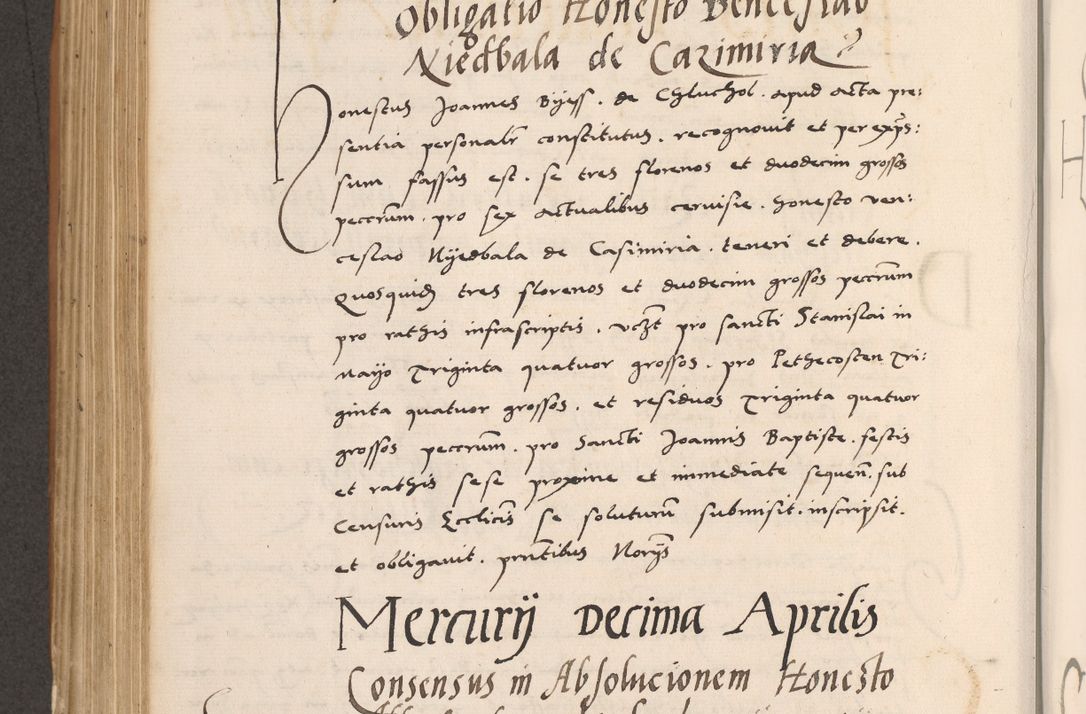 Obligatio Honesto Venceslao
Niedbala de Cazimiria
Honestus Joannes Byess. de Chluchol. apud acta pre:
sentia personalr constitutus. recognovit et per exps:
sum fassus est. se tres florenos et duodecim grossos
peccrum. pro sex actualibus cervisie. honesto ven:
ceslao Nyedbala de Casimiria. teneri et debere.
Quosquid tres florenos et duodecim grossos peccrum
pro rathis infrascriptis. vczt pro sancti Stanislai in
mayo triginta quatuor grossos. pro Pethecosten tri:
ginta quatuor grossos. et residuos triginta quatuor
grossos peccrum. pro Sancti Joannis Baptiste. festis
et rathis sese proxime et immediate sequen. sub
Censuris Ecclicis se soluturum submisit. inscripsit.
et obligavit. prntibus Norys
Mercurij decima Aprilis
Consensus in Absolucionem Honesto